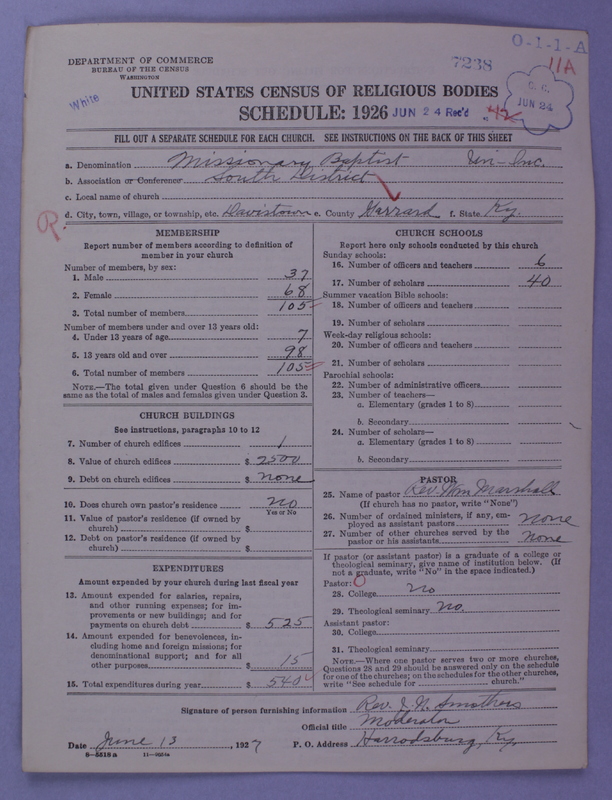 O-1-1-A
DEPARTMENT OF COMMERCE
BUREAU OF THE CENSUS
WASHINGTON
7238
11A
White
UNITED STATES CENSUS OF RELIGIOUS BODIES
SCHEDULE: 1926 JUN 24 Rec'd
JUN 24
FILL OUT A SEPARATE SCHEDULE FOR EACH CHURCH. SEE INSTRUCTIONS ON THE BACK OF THIS SHEET
a. Denomination Missionary Baptist Un-Inc.
b. Association or Conference South District
c. Local name of church
d. City, town, village, or township, etc. Davistown e. County Garrard f. State Ky.
R
MEMBERSHIP
Report number of members according to definition of
member in your church
Number of members, by sex:
1. Male 37
2. Female 68
3. Total number of members 105
Number of members under and over 13 years old:
4. Under 13 years of age 7
5. 13 years old and over 98
6. Total number of members 105
NOTE.—The total given under Question 6 should be the
same as the total of males and females given under Question 3.
CHURCH BUILDINGS
See instructions, paragraphs 10 to 12
7. Number of church edifices 1
8. Value of church edifices $ 2500
9. Debt on church edifices $ none
10. Does church own pastor's residence no
Yes or No
11. Value of pastor's residence (if owned by
church) $
12. Debt on pastor's residence (if owned by
church) $
EXPENDITURES
Amount expended by your church during last fiscal year
13. Amount expended for salaries, repairs,
and other running expenses; for im-
provements or new buildings; and for
payments on church debt $ 525
14. Amount expended for benevolences, in-
cluding home and foreign missions; for
denominational support; and for all
other purposes $ 15
15. Total expenditures during year $ 540
CHURCH SCHOOLS
Report here only schools conducted by this church
Sunday schools:
16. Number of officers and teachers 6
17. Number of scholars 40
Summer vacation Bible schools:
18. Number of officers and teachers
19. Number of scholars
Week-day religious schools:
20. Number of officers and teachers
21. Number of scholars
Parochial schools:
22. Number of administrative officers
23. Number of teachers—
a. Elementary (grades 1 to 8)
b. Secondary
24. Number of scholars—
a. Elementary (grades 1 to 8)
b. Secondary
PASTOR
25. Name of pastor Rev. Wm Marshall
(If church has no pastor, write "None")
26. Number of ordained ministers, if any, em-
ployed as assistant pastors none
27. Number of other churches served by the
pastor or his assistants none
If pastor (or assistant pastor) is a graduate of a college or
theological seminary, give name of institution below. (If
not a graduate, write "No" in the space indicated.)
Pastor: O
28. College no
29. Theological seminary no.
Assistant pastor:
30. College
31. Theological seminary
NOTE.—Where one pastor serves two or more churches,
Questions 28 and 29 should be answered only on the schedule
for one of the churches; on the schedules for the other churches,
write "See schedule for ........ church."
Signature of person furnishing information Rev. J. N. Smothers
Official title Moderator
Date June 13, 1927 P. O. Address Harrodsburg, Ky.
8—5518a